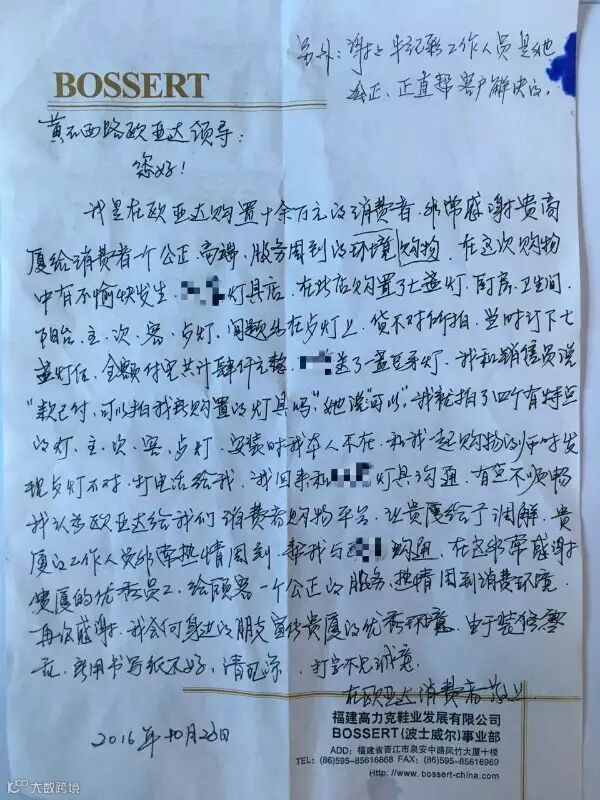 另外：谢谢牛记彩工作人员是她
公正、正直帮客户解决的。
BOSSERT
黄石西路欧亚达领导：
您好！
我是在欧亚达购置十余万元的消费者，非常感谢贵商
厦给消费者一个公正、高端、服务周到的环境购物，在这次购物
中有不愉快发生，灯具店，在此店购置了七盏灯，厨房、卫生间、
阳台、主、次、客、点灯，问题出在点灯上，货不对价拍，当时订下七
盏灯位，全额付完共计肆仟元整，送了一盏豆芽灯，我和销售员说
“款已付，可以拍我要购置的灯具吗”她说“可以”，我就拍了四个有特点
的灯、主、次、客、点灯，安装时我本人不在，和我一起购物的师姐发
现点灯不对，打电话给我，我回来和灯具沟通，有些不顺畅
我认为欧亚达给我们消费者购物平台，让贵厦给予调解，贵
厦的工作人员非常热情周到，帮我与沟通，在这非常感谢
贵厦的优秀员工，给顾客一个公正的服务、热情周到消费环境，
再次感谢，我会向身边的朋友宣传贵厦的优秀环境，由于装修零
乱，所用书写纸不好，请见凉，打字不见诚意。
在欧亚达消费者敬上
2016年10月23日
福建高力克鞋业发展有限公司
BOSSERT(波士威尔)事业部
ADD: 福建省晋江市泉安中路凤竹大厦十楼
TEL: (86)595-85616868 FAX: (86)595-85616969
Http://www.bossert-china.com
大数跨境